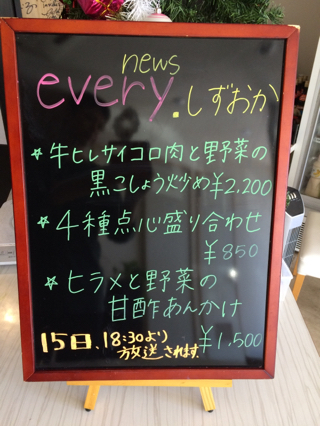 news
every.しずおか
☆牛ヒレサイコロ肉と野菜の
黒こしょう炒め¥2,200
☆4種点心盛り合わせ
¥850
☆ヒラメと野菜の
甘酢あんかけ
¥1,500
15日、18:30より
放送されます。